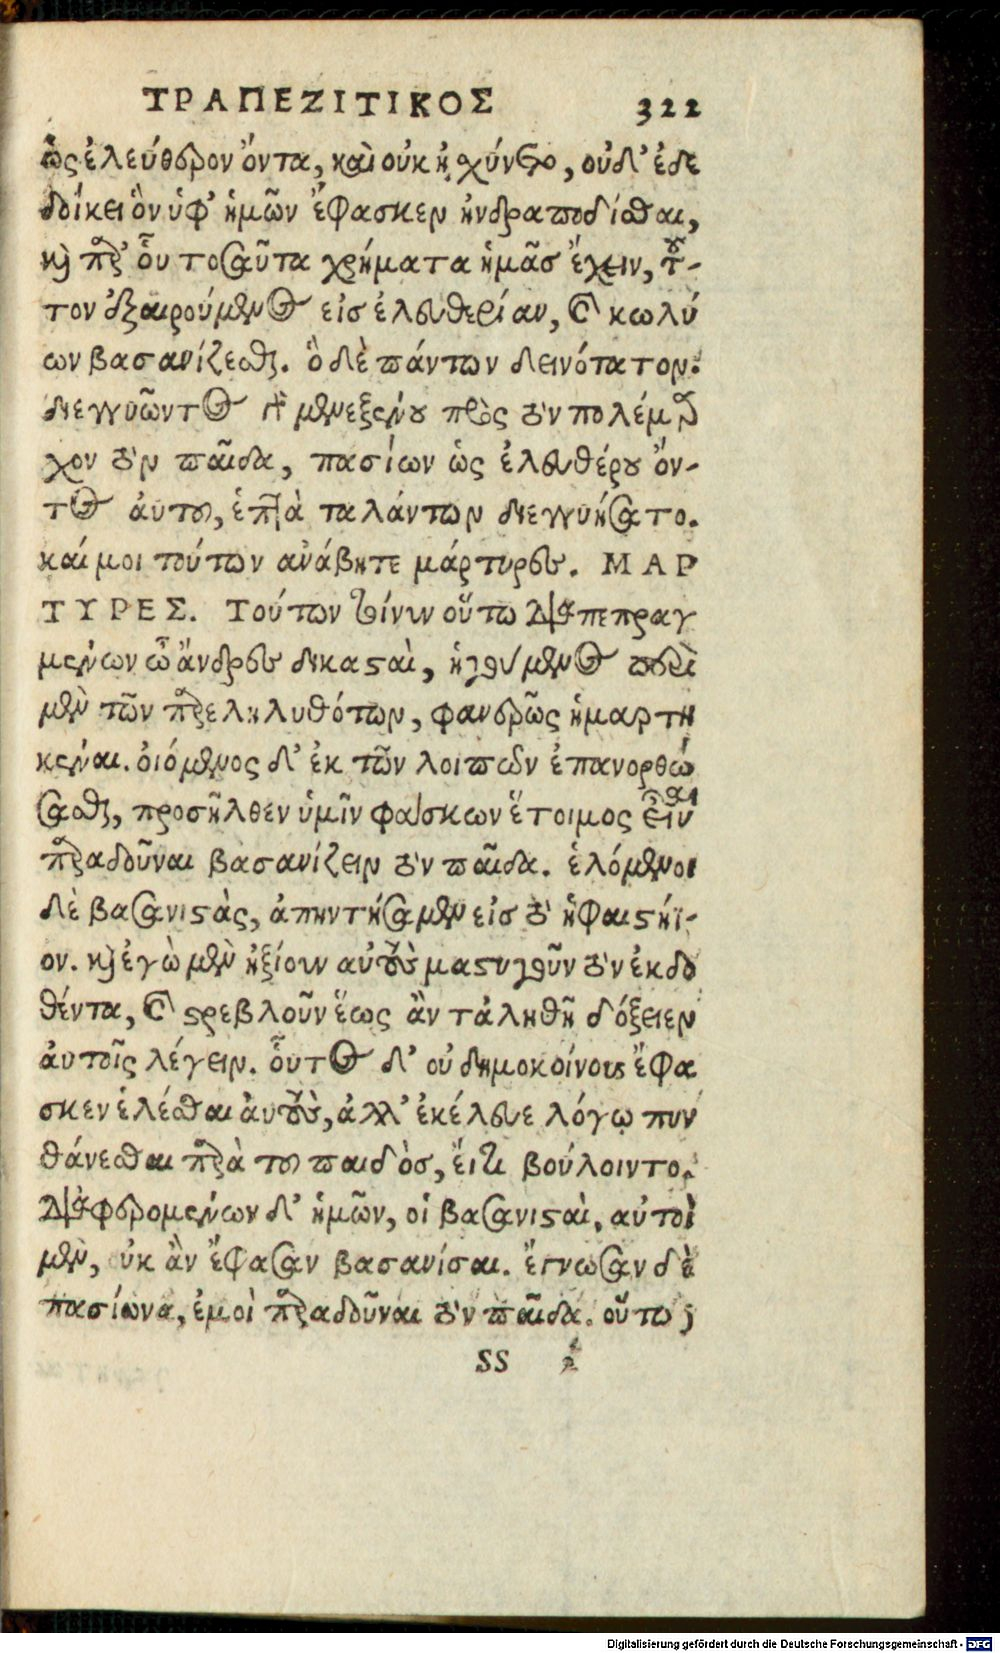 ΤΡΑΠΕΖΙΤΙΚΟΣ 322
ὡς ἐλεύθερον ὄντα, καὶ οὐκ ᾐχύνετο, οὐδ' ἐδε
δοίκει ὃν ὑφ' ἡμῶν ἔφασκεν ἠνδραποδίσθαι,
καὶ παρ' οὗ τοσαῦτα χρήματα ἡμᾶσ ἔχειν, τοῦ-
τον ἐξαιρούμενος εἰσ ἐλευθερίαν, καὶ κωλύ
ων βασανίζεσθαι. ὃ δὲ πάντων δεινότατον.
διεγγυῶντος γὰρ μενεξένου πρὸς τὸν πολέμαρ
χον τὸν παῖδα, πασίων ὡς ἐλευθέρου ὄν-
τος ἀυτοῦ, ἑπτὰ ταλάντων διεγγυήσατο.
καί μοι τούτων ἀνάβητε μάρτυρες. ΜΑΡ
ΤΥΡΕΣ. Τούτων τοίνυν οὕτω διαπεπραγ
μένων ὦ ἄνδρες δικασταὶ, ἡγούμενος περὶ
μὲν τῶν παρεληλυθότων, φανερῶς ἡμαρτη
κέναι. οἰόμενος δ' ἐκ τῶν λοιπῶν ἐπανορθώ
σασθαι, προσῆλθεν ὑμῖν φάσκων ἕτοιμος εἶναι
παραδοῦναι βασανίζειν τὸν παῖδα. ἑλόμενοι
δὲ βασανιστὰς, ἀπηντήσαμεν εἰσ τὸ ἡφαιστήϊ-
ον. καὶ ἐγὼ μὲν ἠξίουν αὐτοὺς μαστιγοῦν τὸν ἐκδο
θέντα, καὶ στρεβλοῦν ἕως ἂν τἀληθῆ δόξειεν
ἀυτοῖς λέγειν. οὗτος δ' οὐ δημοκοίνους ἔφα
σκεν ἑλέσθαι ἀυτοὺς, ἀλλ' ἐκέλευε λόγῳ πυν
θάνεσθαι παρὰ τοῦ παιδὸσ, ἔιτι βούλοιντο.
διαφερομένων δ' ἡμῶν, οἱ βασανισταὶ, αὐτοὶ
μὲν, οὐκ ἂν ἔφασαν βασανίσαι. ἔγνωσαν δὲ
πασίωνα, ἐμοὶ παραδοῦναι τὸν παῖδα. οὕτω
SS 2
Digitalisierung gefördert durch die Deutsche Forschungsgemeinschaft - DFG